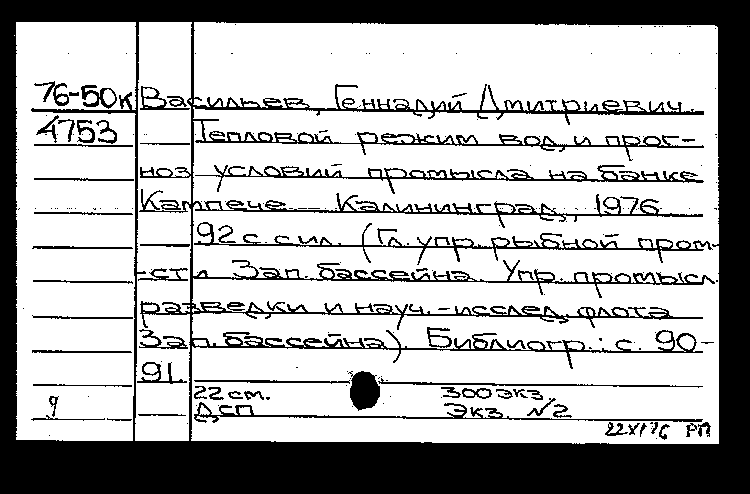 76-50к Васильев, Геннадий Дмитриевич.
4753 Тепловой режим вод и прог-
ноз условий промысла на банке
Кампече. – Калининград, 1976
92 с. с ил. (Гл. упр. рыбной пром-
-сти Зап. бассейна. Упр. промысл.
разведки и науч.-исслед. флота
Зап. бассейна). Библиогр.: с. 90-
91.
22 см. 300 экз.
9 ДСП Экз. №2
22 XI 76 РП